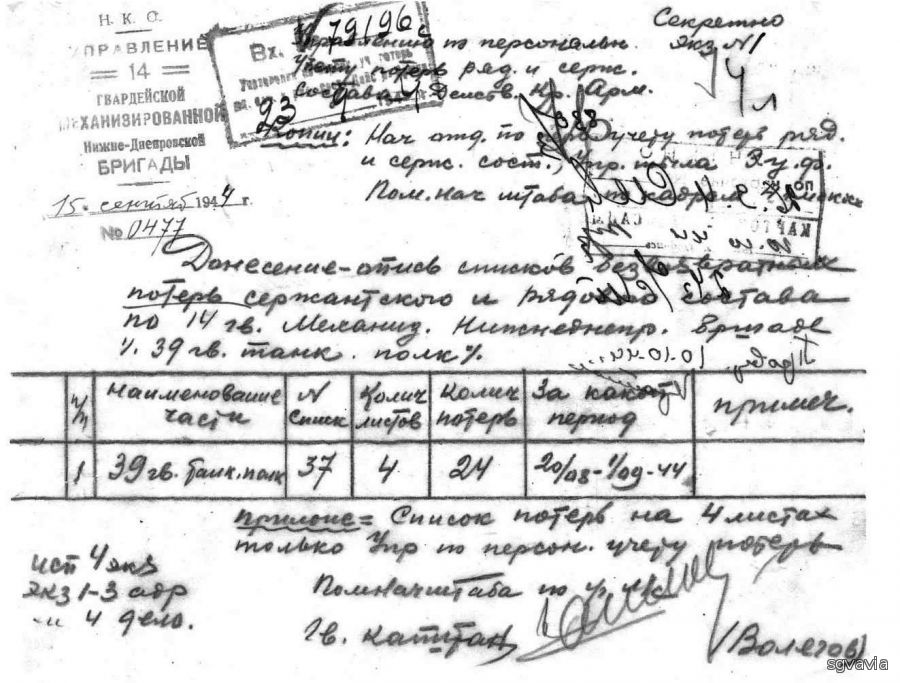 Н. К. О.
УПРАВЛЕНИЕ
14
ГВАРДЕЙСКОЙ
МЕХАНИЗИРОВАННОЙ
Нижне-Днепровской
БРИГАДЫ
15. сентября 1944 г.
№ 0477
Вх. 79196с
Секретно
экз N1
Управлению по персональн.
учету потерь ряд. и серж.
состава Действ. Кр. Арм.
Копии: Нач отд. по учету потерь ряд.
и серж. сост., Упр. тыла 3 у. ф.
Пом. нач штаба по кадрам
Донесение-опись списков безвозвратных
потерь сержантского и рядового состава
по 14 гв. Механиз. Нижнеднепр. бригаде
%. 39 гв. танк. полк %.
п/п наименование части N списк Колич листов Колич потерь За какой период примеч.
1 39 гв. танк. полк 37 4 24 20/08-1/09-44
прилож = Список потерь на 4 листах
только Упр по персон. учету потерь
исп 4 экз
экз 1-3 адр
-"- 4 дело.
Пом Нач штаба по
Гв. капитан
(Волегов)
sgvavia